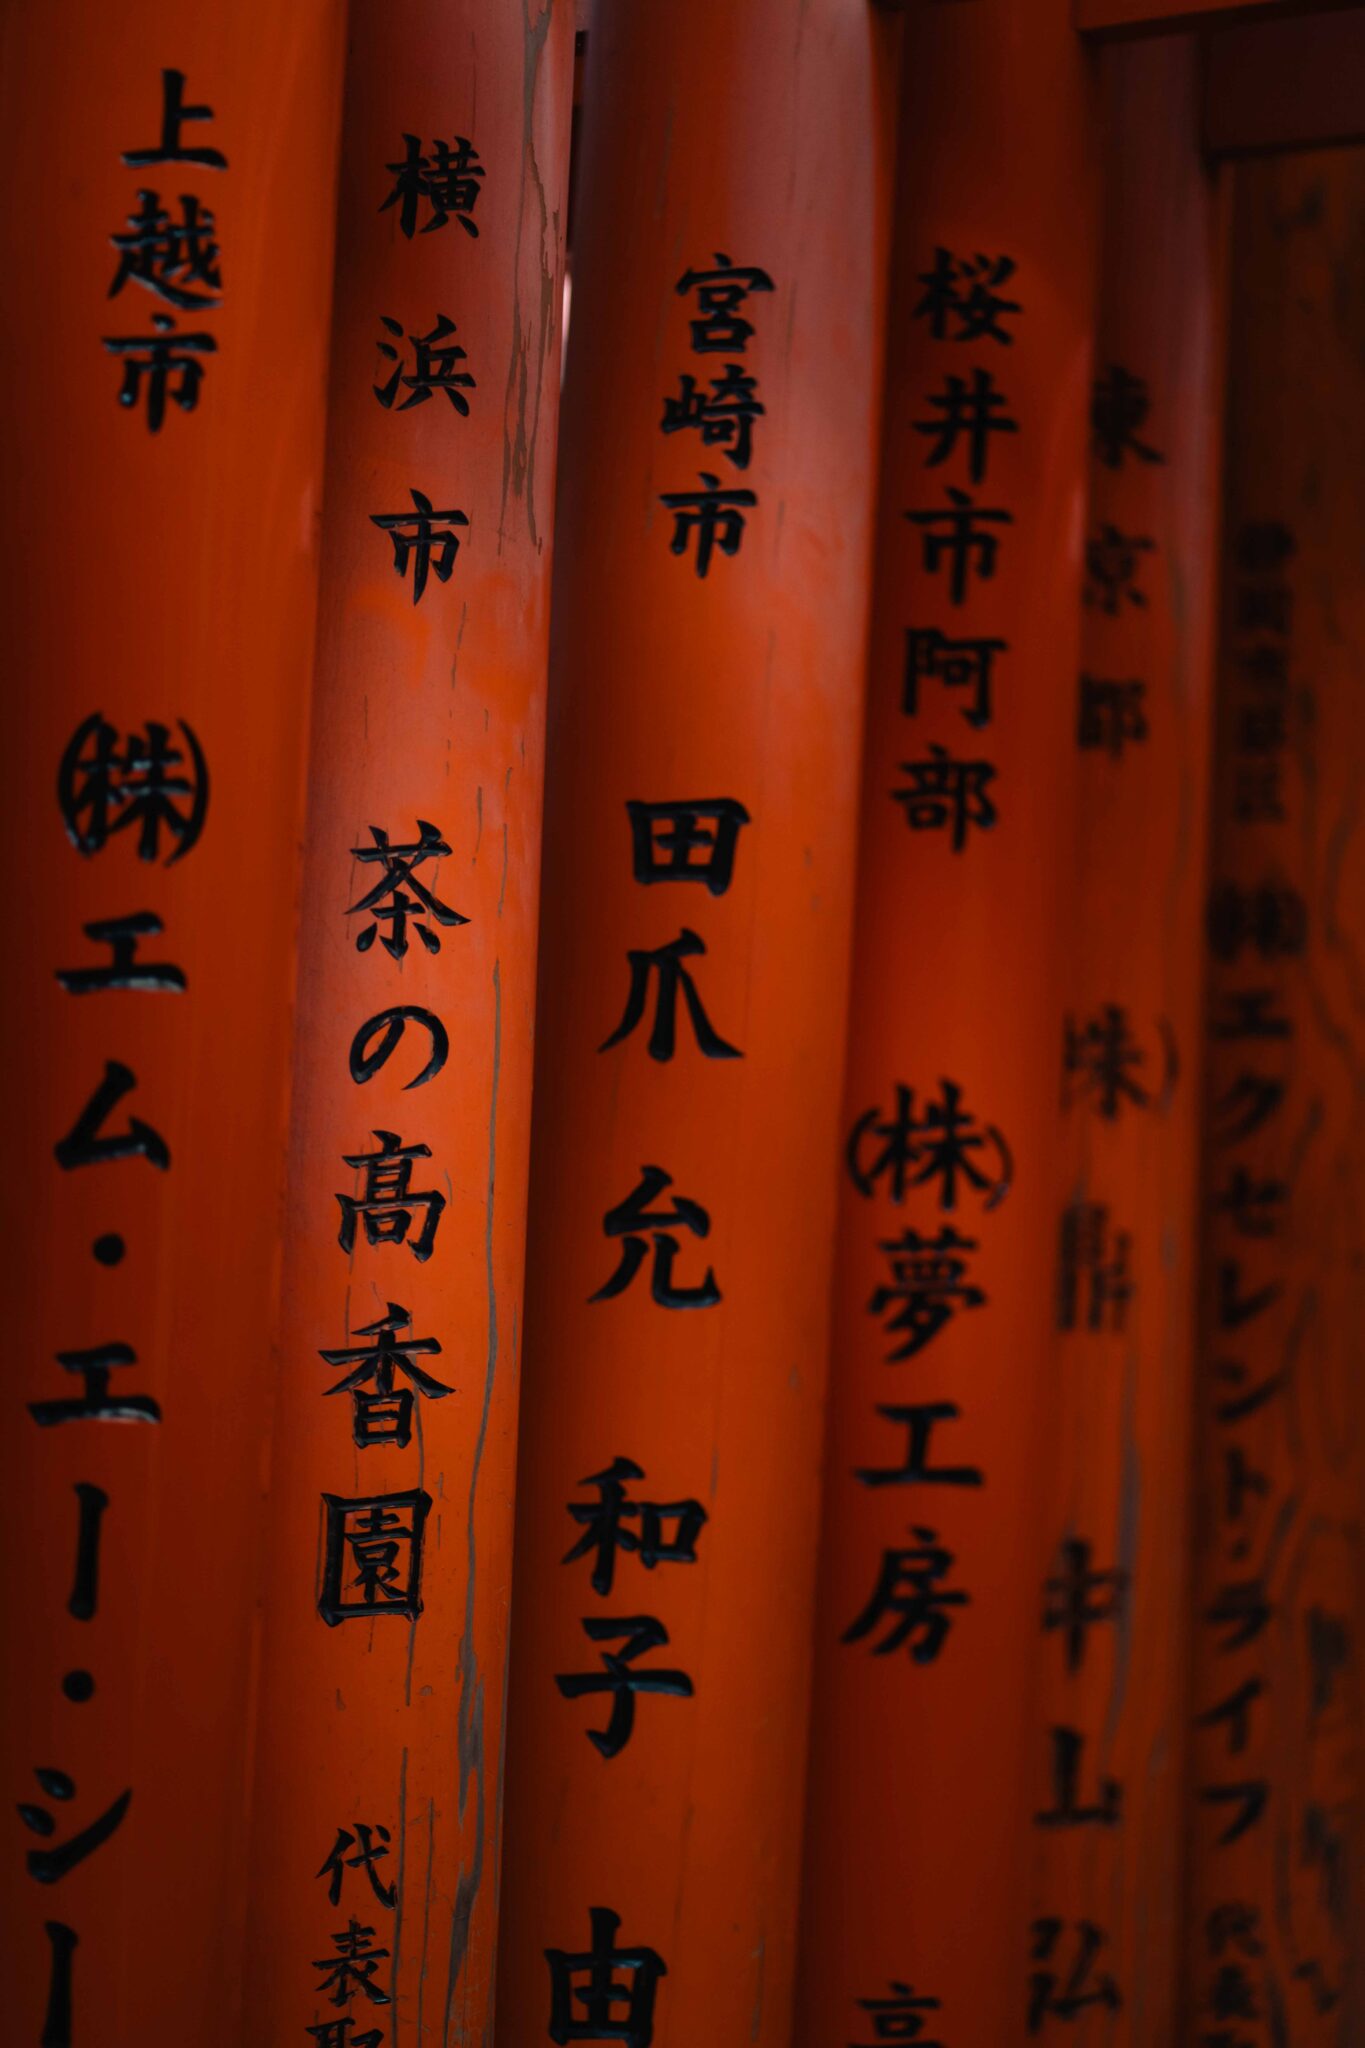 上越市 ㈱エム・エー・シー
横浜市 茶の高香園 代表取
宮崎市 田爪允 和子 由
桜井市阿部 ㈱夢工房 高
東京都 ㈱ 中山弘
㈱エクセレント・ライフ 代表